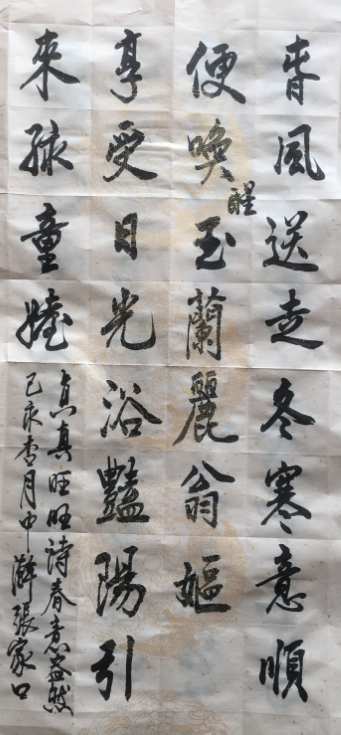 春風送走冬寒意順
便喚醒玉蘭麗翁嫗
享受日光浴豔陽引
來孩童嬉
貞真旺旺詩春意盎然
己亥杏月中澣張家口